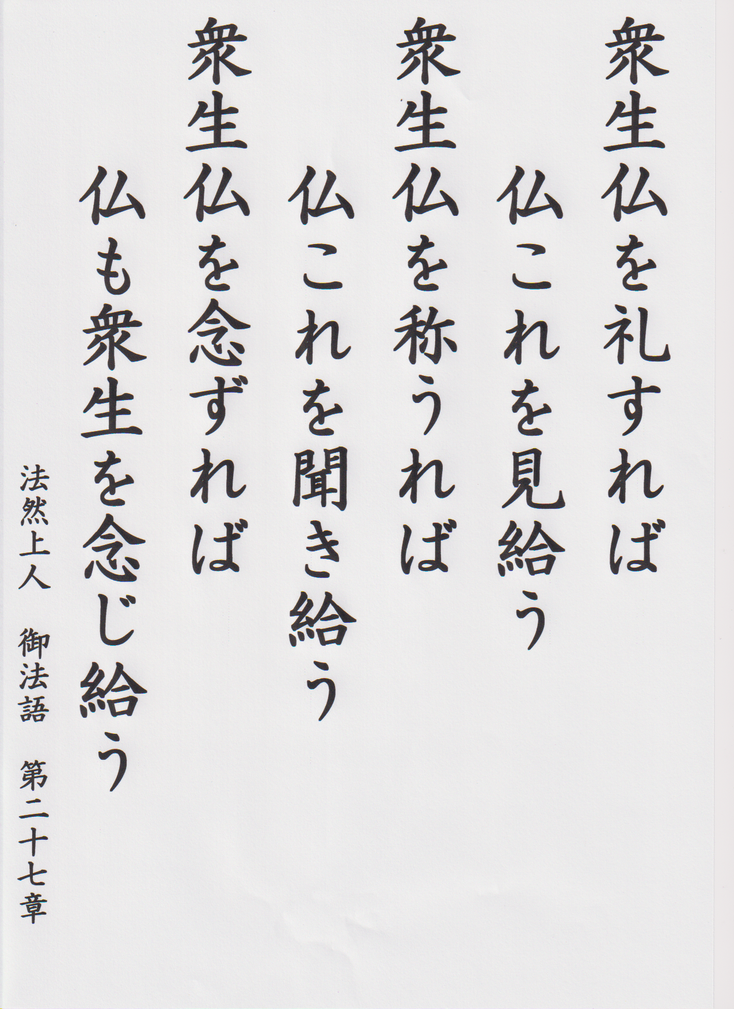 衆生仏を礼すれば
仏これを見給う
衆生仏を称うれば
仏これを聞き給う
衆生仏を念ずれば
仏も衆生を念じ給う
法然上人　御法語　第二十七章